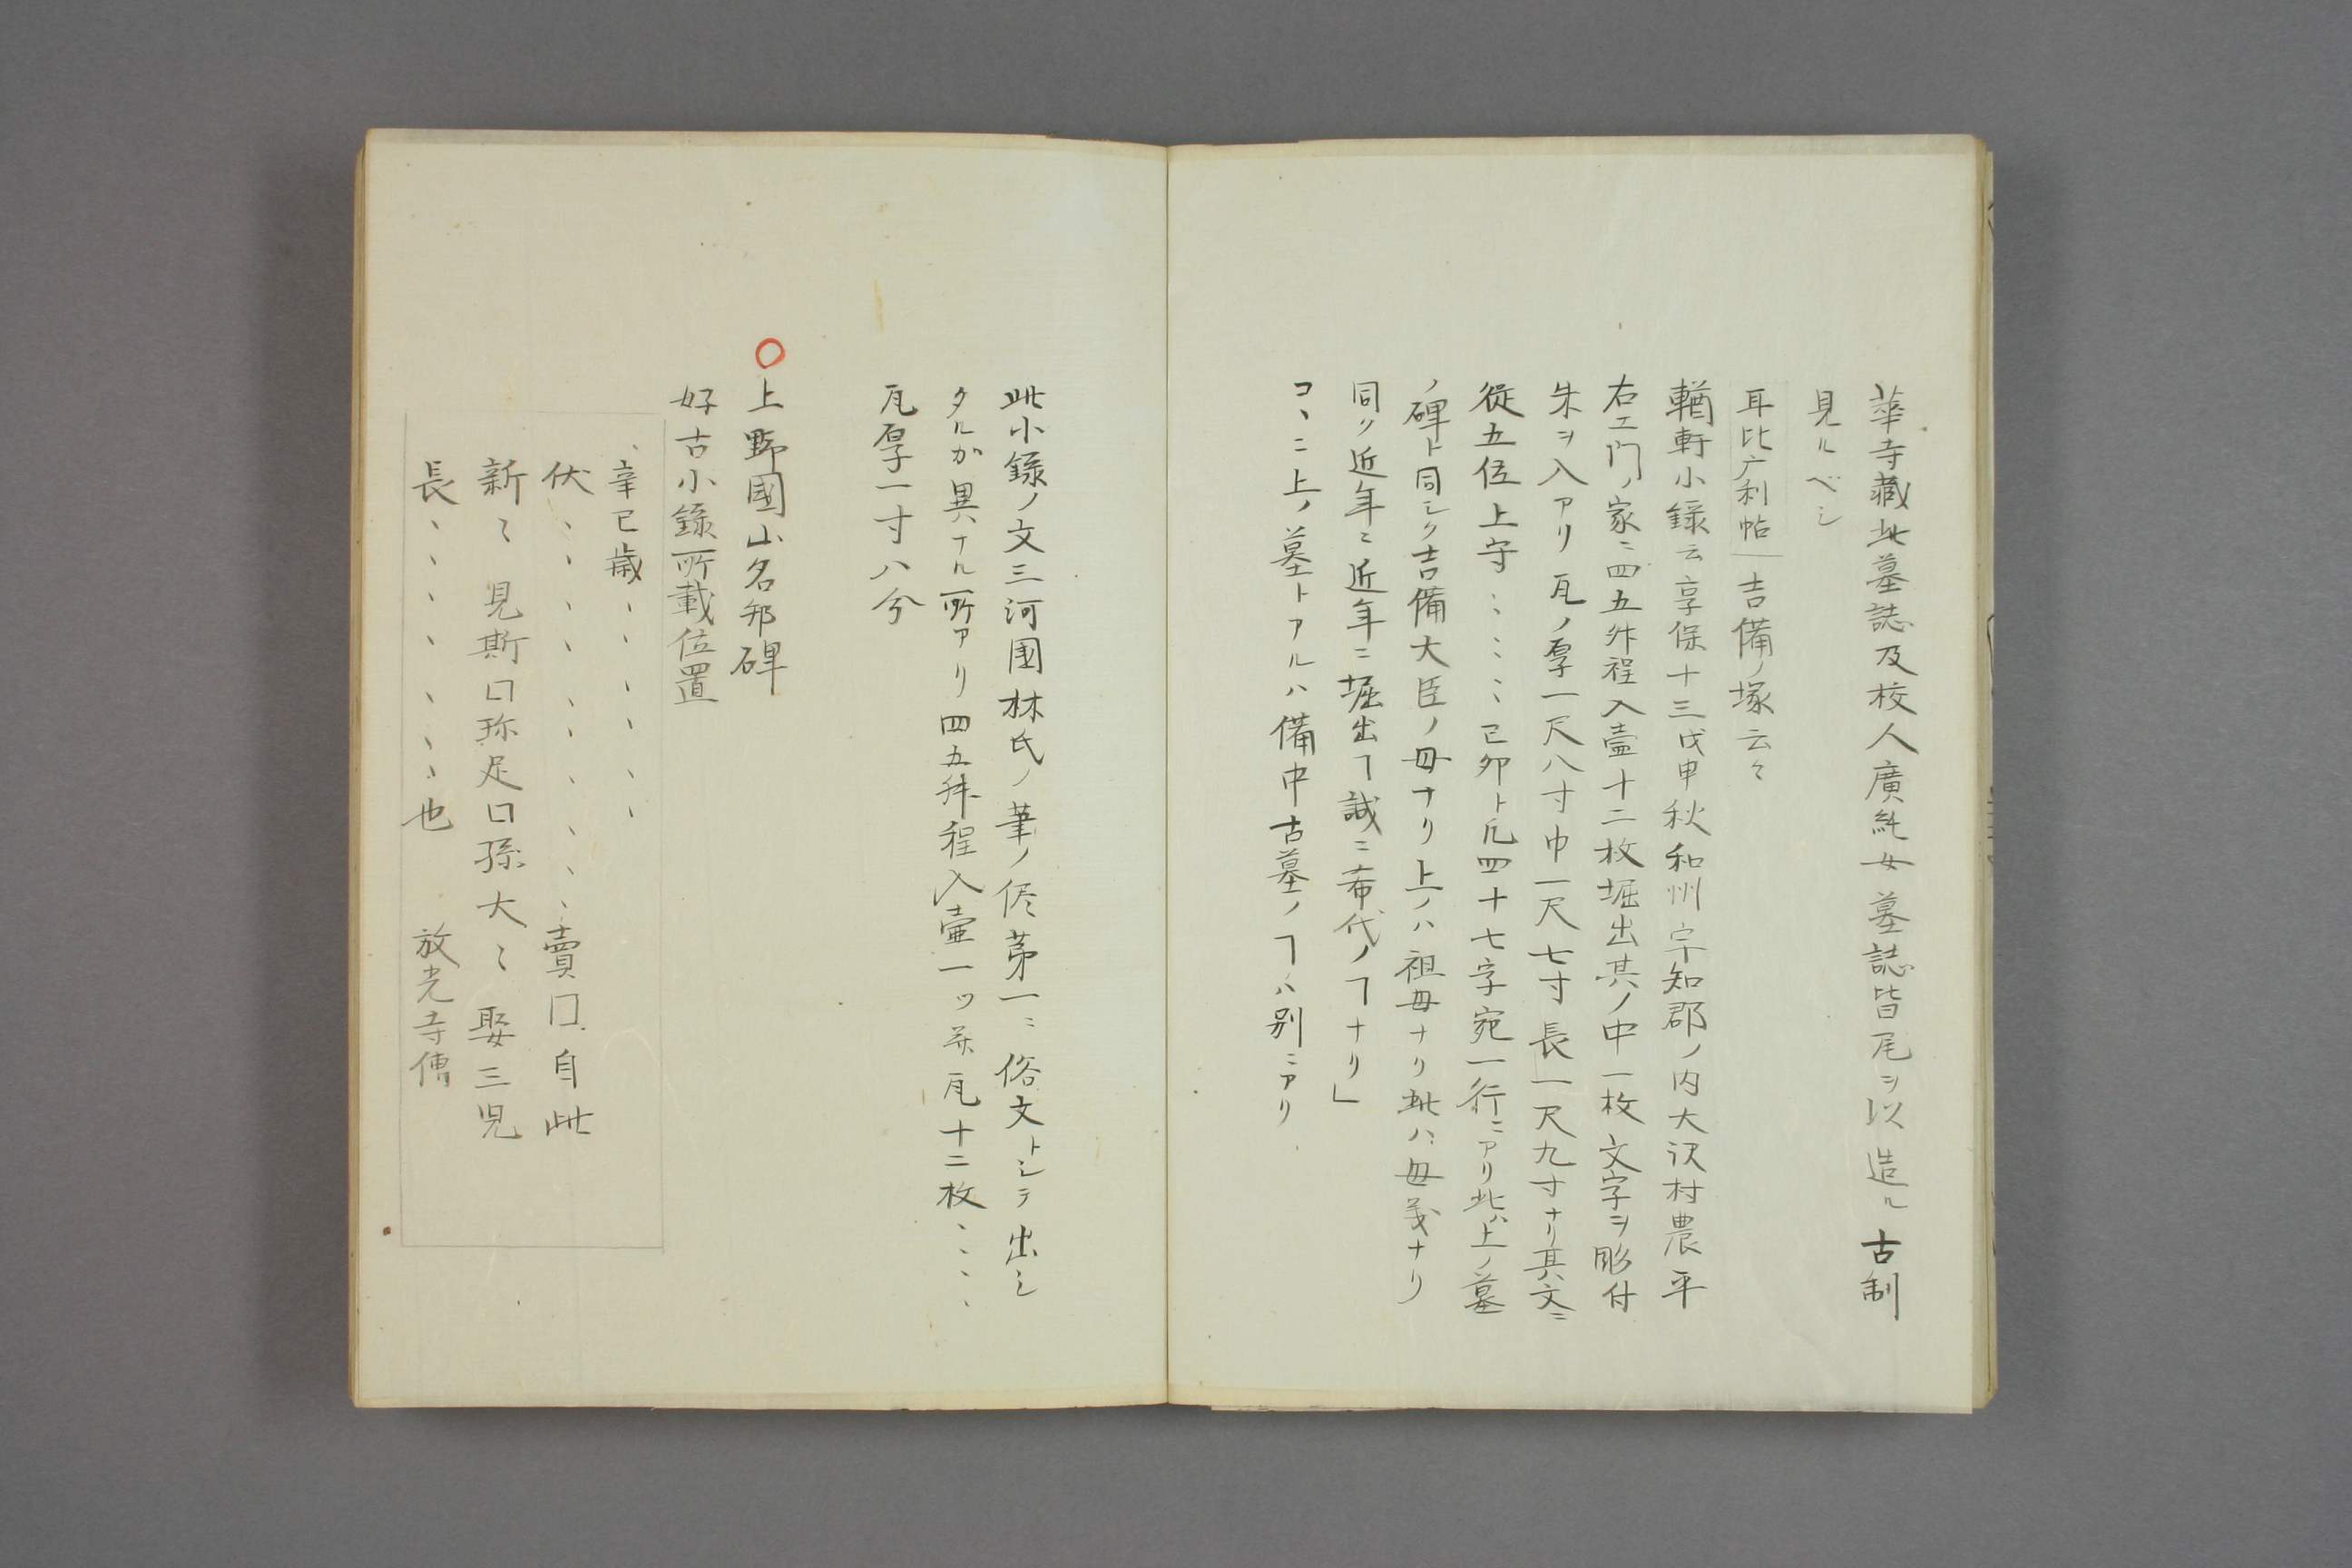 華寺藏此墓誌及校人廣純女墓誌皆尾ヲ以造ル古制
見ルベシ
耳比广利帖 吉備ノ塚云々
輶軒小錄云享保十三戊申秋和州宇知郡ノ内大沢村農平
右エ门ノ家ニ四五舛程入壷十二枚堀出其ノ中一枚文字ヲ彫付
朱ヲ入アリ瓦ノ厚一尺八寸巾一尺七寸長一尺九寸ナリ其文ニ
従五位上守、、、、己卯ト凡四十七字宛一行ニアリ此ハ上ノ墓
ノ碑ト同シク吉備大臣ノ母ナリ上ノハ祖母ナリ此ハ母義ナリ
同ク近年ミ近年ニ堀出ヿ誠ニ希代ノヿナリ」
コヽニ上ノ墓トアルハ備中古墓ノヿハ別ニアリ
此小錄ノ文三河國林氏ノ筆ノ侭苐一ニ俗文トシテ出シ
タルカ異ナル所アリ四五舛程入壷一ツ并瓦十二枚、、、、
瓦厚一寸八分
〇上野國山名邨碑
好古小錄所載位置
辛巳歳、、、、、、
伏、、、、、、、、、賣口自此
新々見斯口孫足口孫大々娶三児
長、、、、、、、也 放光寺僧